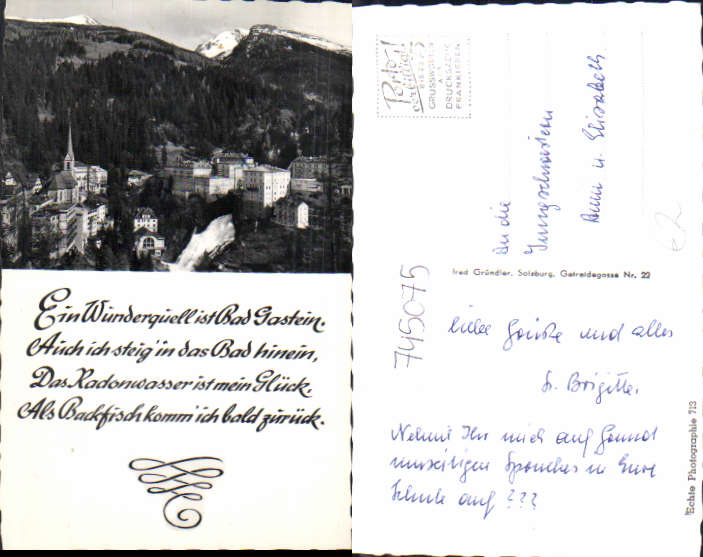 Ein Wunderquell ist Bad Gastein.
Auch ich steig' in das Bad hinein,
Das Radonwasser ist mein Glück.
Als Backfisch komm' ich bald zurück.
Porto-
verbilligt!
GRUSSWORTEN
ALS
DRUCKSACHE
FRANKIEREN
An die
Jungschwestern
Anni u. Elisabeth
€2
fred Gründler, Salzburg, Getreidegasse Nr. 22
745075
liebe Grüße und alles
b. Brigitte.
Nehmt Ihr mich auf Grund
umseitigen Spruches in Eure
Schule auf ???
Echte Photographie 713